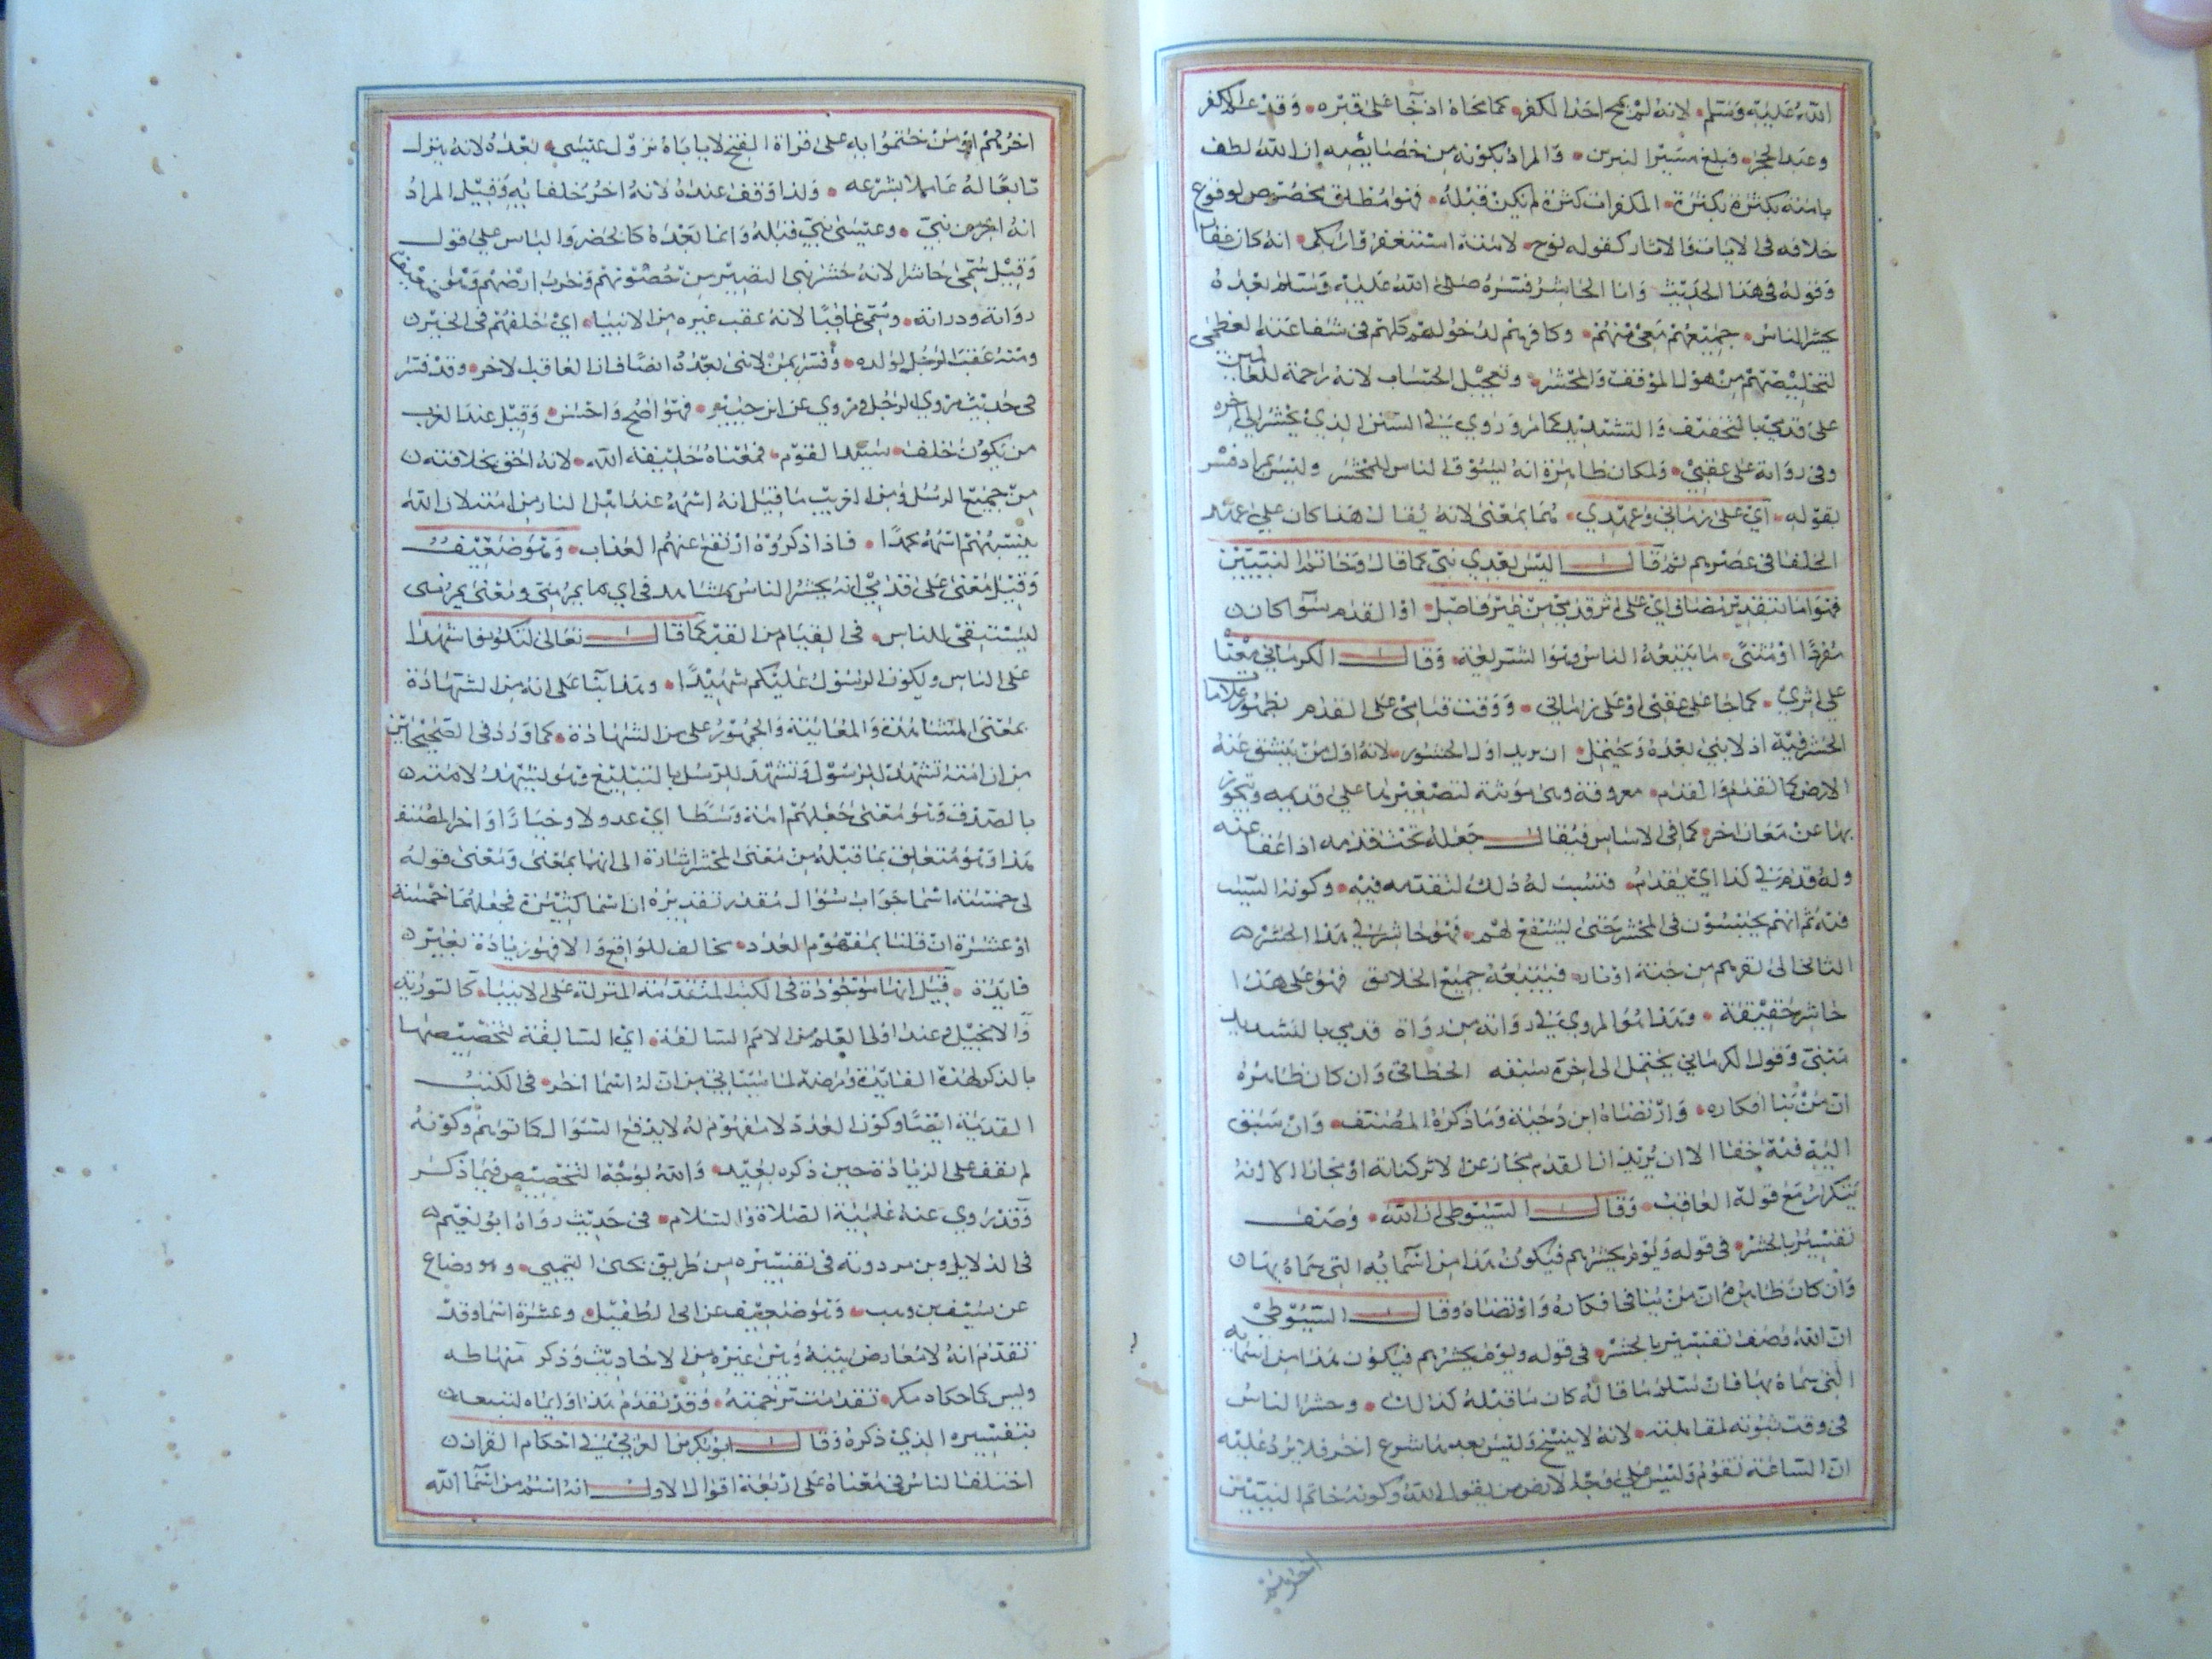 الله عليه وسلم لانه لم يمح احدا الكفر كما محاه اذ جا على قبره وقد علا الكفر
وعبد الحجر فبلغ مسير النيرين والمراد بكونه من خصايصه ان الله لطف
بامته بكثرة المكفرات كثرة لم يكن قبله فهو مطلق مخصوص لوقوع
خلافه في الايات والاثار كقوله نوح لامته استغفروا ربكم انه كان غفارا
وقوله في هذا الحديث وانا الحاشر فسره صلى الله عليه وسلم بعده
يحشر الناس جميعهم وكافرهم لدخولهم كلهم في شفاعته العظمى
لتخليصهم من هول الموقف والمحشر وتعجيل الحساب لانه رحمة للعالمين
على قدمي بالتخفيف والتشديد كما مر وروي في السنن الذي يحشر الى اخره
وفي رواية على عقبي ولما كان ظاهره انه يسوق الناس للمحشر وليس بمراد فسر
بقوله اي على زماني وعهدي هما بمعنى لانه يقال هذا كان على عهد
الخلفا في عصرهم ثم قال اليس بعدي نبي كما قال وخاتم النبيين
فهو اما بتقدير مضاف اي على اثر قدمي من غير فاصل او القدم سوا كان
مفردا او مثنى ما يتبعه الناس وهو الشريعة وقال الكرماني معنا
على اثري كما جا على عقبي او على زماني ووقت قيامي على القدم بظهور علامات
الحشر فيه اذ لا نبي بعده ويحتمل ان يريد اول الحشور لانه اول من ينشق عنه
الارض كما تقدم والقدم معروفة وهي مؤنثة لتصغيرها على قديمه وتجوز
بها عن معان اخر كما في الاساس فيقال جعله تحت قدمه اذا عفا عنه
وله قدم في كذا اي تقدم فنسب له ذلك لتقدمه فيه وكونه السبب
فيه ثم انهم يحبسون في المحشر حتى يشفع لهم فهو حاشر في هذا الحشر
الثاني الى مقرهم من جنة او نار فيتبعه جميع الخلايق فهو على هذا
حاشر حقيقة وهذا هو المروي في رواية من رواه قدمي بالتشديد
مثنى وقول الكرماني يحتمل الى اخره سبقه الخطابي وان كان ظاهره
ان من بنا افكاره وارتضاه ابن دحية وما ذكره المصنف وان سبق
اليه فيه خفا الا ان يريد ان القدم مجاز عن الاثر كناية او مجازا لكنه
يتكرر مع قوله العاقب وقال السيوطي ان الله وصف
نفسه بالحشر في قوله ويوم يحشرهم فيكون هذا من اسمايه التي سماه بها
وان كان ظاهره ان من بنا في افكاره وارتضاه وقال السيوطي
ان الله وصف نفسه بالحشر في قوله ويوم يحشرهم فيكون هذا من اسمايه
التي سماه بها فان سلم ما قاله كان ما قبله كذلك وحشر الناس
في وقت نبوته لمقابلته لانه لا ينسخ وليس بعدها شرع اخر فلا يرد عليه
ان الساعة تقوم وليس على وجه الارض من يقول الله وكونه خاتم النبيين
اخرهم
اخرهم او من ختموا به على قراة الفتح لا يأباه نزول عيسى بعده لانه ينزل
تابعا له عاملا بشرعه ولذا وقف عنده لانه اخر خلفايه وقيل المراد
انه اخر من نبي وعيسى نبي قبله وانما بعده كالخضر والياس على قول
وقيل سمي حاشرا لانه حشر بني النضير من حصونهم وخرب ارضهم وهو ضعيف
رواية ودراية وسمي عاقبا لانه عقب غيره من الانبيا اي خلفهم في الخير
ومنه عقب الرجل لولده وفسر بمن لا نبي بعده ايضا فان العاقب الاخر وقد فسر
في حديث مروي الرجل مروي عن ابن جبير فهو اصح واحسن وقيل عند العرب
من يكون خلف سيد القوم فمعناه خليفة الله لانه احق بخلافته
من جميع الرسل ومن الغريب ما قيل انه اسمه عند اهل النار من امته لان الله
ينسيهم اسمه محمدا فاذا ذكروه ارتفع عنهم العذاب وهو ضعيف
وقيل معنى على قدمي انه يحشر الناس بمشاهدتي اي بما بمرئي ومعنى بمرئي
ليستبقي للناس في القيام من القبر كما قال تعالى لتكونوا شهدا
على الناس ويكون الرسول عليكم شهيدا وهذا بنا على انه من الشهادة
بمعنى المشاهدة والمعاينة والجمهور على من الشهادة كما ورد في الصحيحين
من ان امته تشهد للرسول وتشهد للرسل بالتبليغ وهو يشهد لامته
بالصدق وهو معنى جعلهم امة وسطا اي عدولا وخيارا واخر المصنف
هذا وهو متعلق بما قبله من معنى الحشر اشارة الى انها بمعنى ومعنى قوله
لي خمسة اسما جواب سؤال مقدر تقديره ان اسماه كثيرة فجعلها خمسة
او عشرة ان قلنا بمفهوم العدد مخالف للواقع والا فهو زيادة بغير
فايدة قيل انها موجودة في الكتب المتقدمة المنزلة على الانبيا كالتورية
والانجيل وعند اولي العلم من الامم السالفة اي السابقة تخصيصها
بالذكر لهذه الفايدة ومرضه لما سياتي من ان له اسما اخر في الكتب
القديمة ايضا وكون العدد لا مفهوم له لا يدفع السؤال كما توهم وكونه
لم يقف على الزيادة حين ذكره بعيد والله بوجه التخصيص فيما ذكر
وقد روي عنه عليه الصلاة والسلام في حديث رواه ابو نعيم
في الدلايل وبن مردويه في تفسيره من طريق يحيى التيمي وهو وضاع
عن سيف بن وهب وهو ضعيف عن ابي الطفيل وعشرة اسما وقد
تقدم انه لا معارض بينه وبين غيره من الاحاديث وذكر منها طه
ويس كما حكاه مكي تقدمت ترجمته وقد تقدم هذا واياه لتتبعه
بتفسيره الذي ذكره وقال ابو بكر بن العربي في احكام القران
اختلف الناس في معناه على اربعة اقوال الاول انه اسم من اسما الله